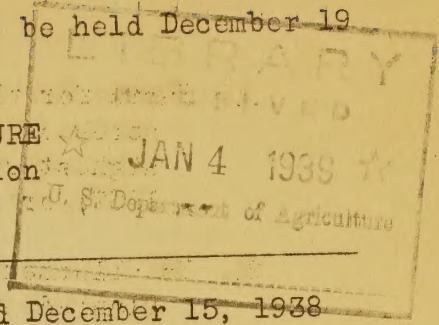 be held December 19
LIBRARY
URE
ion
☆ JAN 4 1939 ☆
U. S. Department of Agriculture
d December 15, 1938